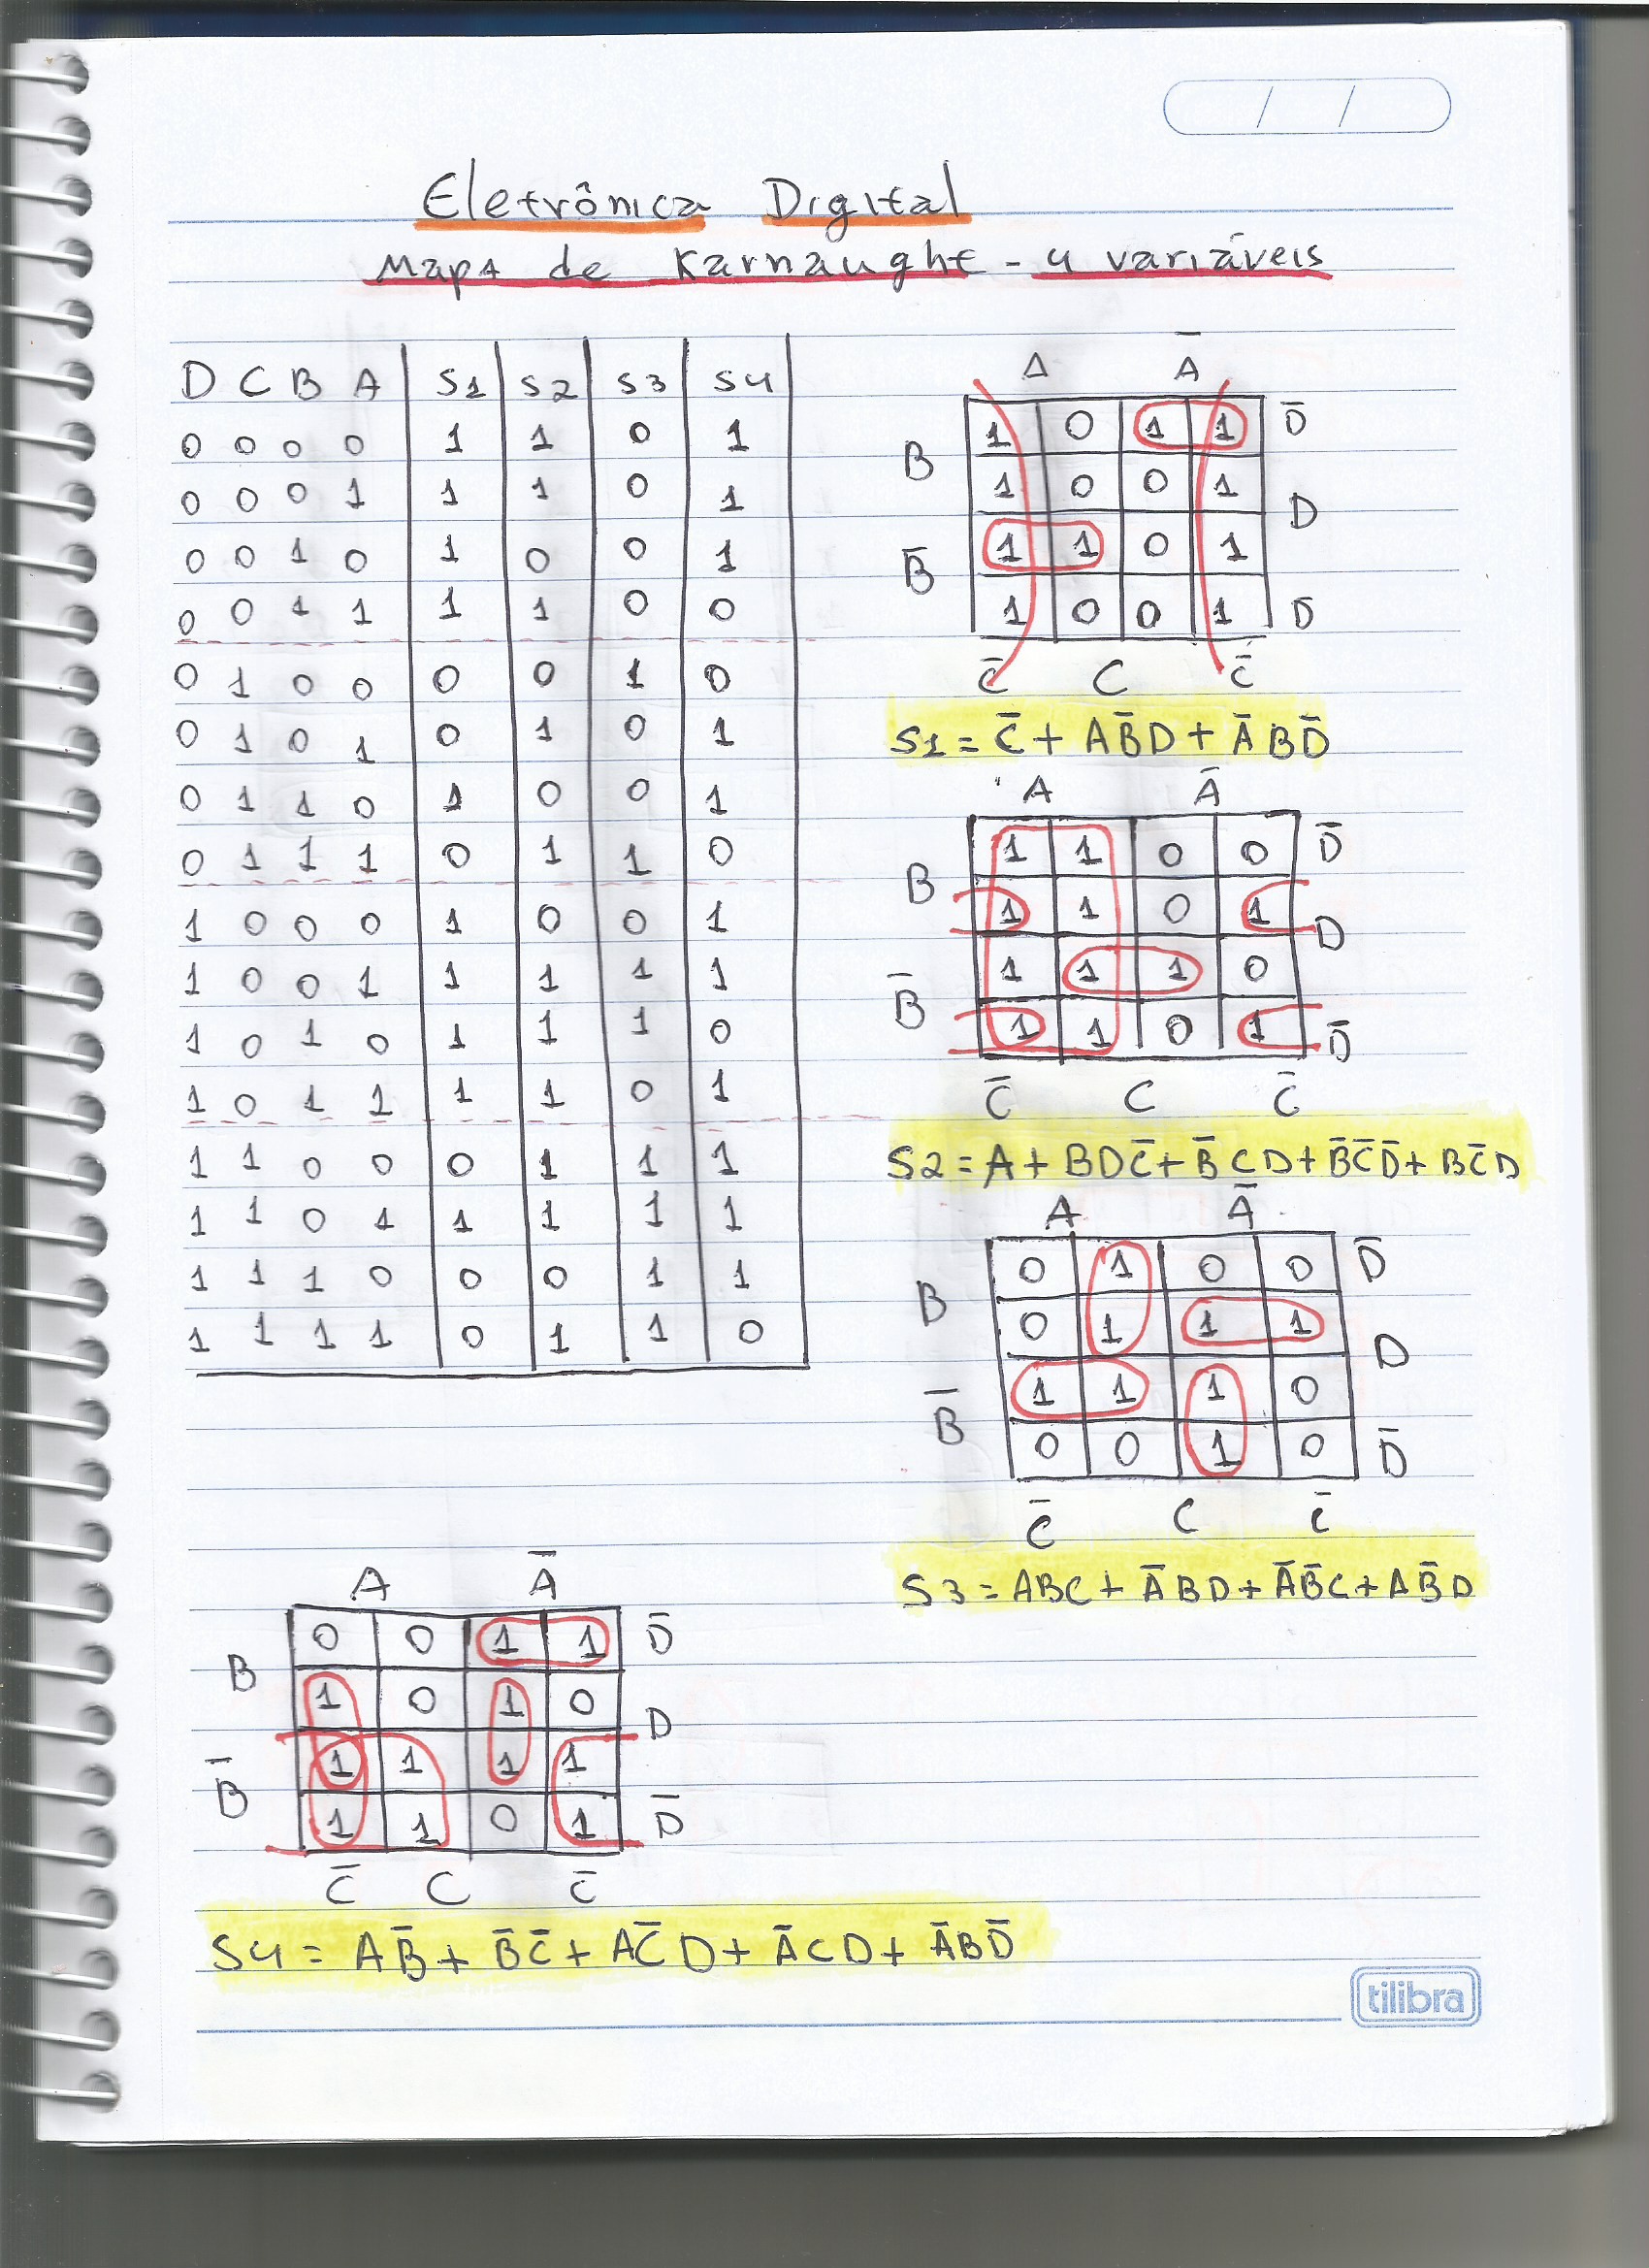 Eletrônica Digital
Mapa de Karnaught - 4 variáveis
D C B A S1 S2 S3 S4
0 0 0 0 1 1 0 1
0 0 0 1 1 1 0 1
0 0 1 0 1 0 0 1
0 0 1 1 1 1 0 0
0 1 0 0 0 0 1 0
0 1 0 1 0 1 0 1
0 1 1 0 1 0 0 1
0 1 1 1 0 1 1 0
1 0 0 0 1 0 0 1
1 0 0 1 1 1 1 1
1 0 1 0 1 1 1 0
1 0 1 1 1 1 0 1
1 1 0 0 0 1 1 1
1 1 0 1 1 1 1 1
1 1 1 0 0 0 1 1
1 1 1 1 0 1 1 0
A Ā
B 1 0 1 1 D̄
1 0 0 1 D
B̄ 1 1 0 1
1 0 0 1 D̄
C̄ C C̄
S1 = C̄ + AB̄D + ĀBD̄
A Ā
B 1 1 0 0 D̄
1 1 0 1 D
B̄ 1 1 1 0
1 1 0 1 D̄
C̄ C C̄
S2 = A + BDC̄ + B̄CD + B̄C̄D̄ + BC̄D
A Ā
B 0 1 0 0 D̄
0 1 1 1 D
B̄ 1 1 1 0
0 0 1 0 D̄
C̄ C C̄
S3 = ABC + ĀBD + ĀB̄C + AB̄D
A Ā
B 0 0 1 1 D̄
1 0 1 0 D
B̄ 1 1 1 1
1 1 0 1 D̄
C̄ C C̄
S4 = AB̄ + B̄C̄ + AC̄D + ĀCD + ĀBD̄
tilibra